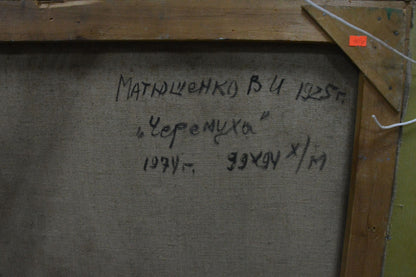 Матюшенко В И 1925 г.
„Черемуха"
1974 г. 99х94 х/м